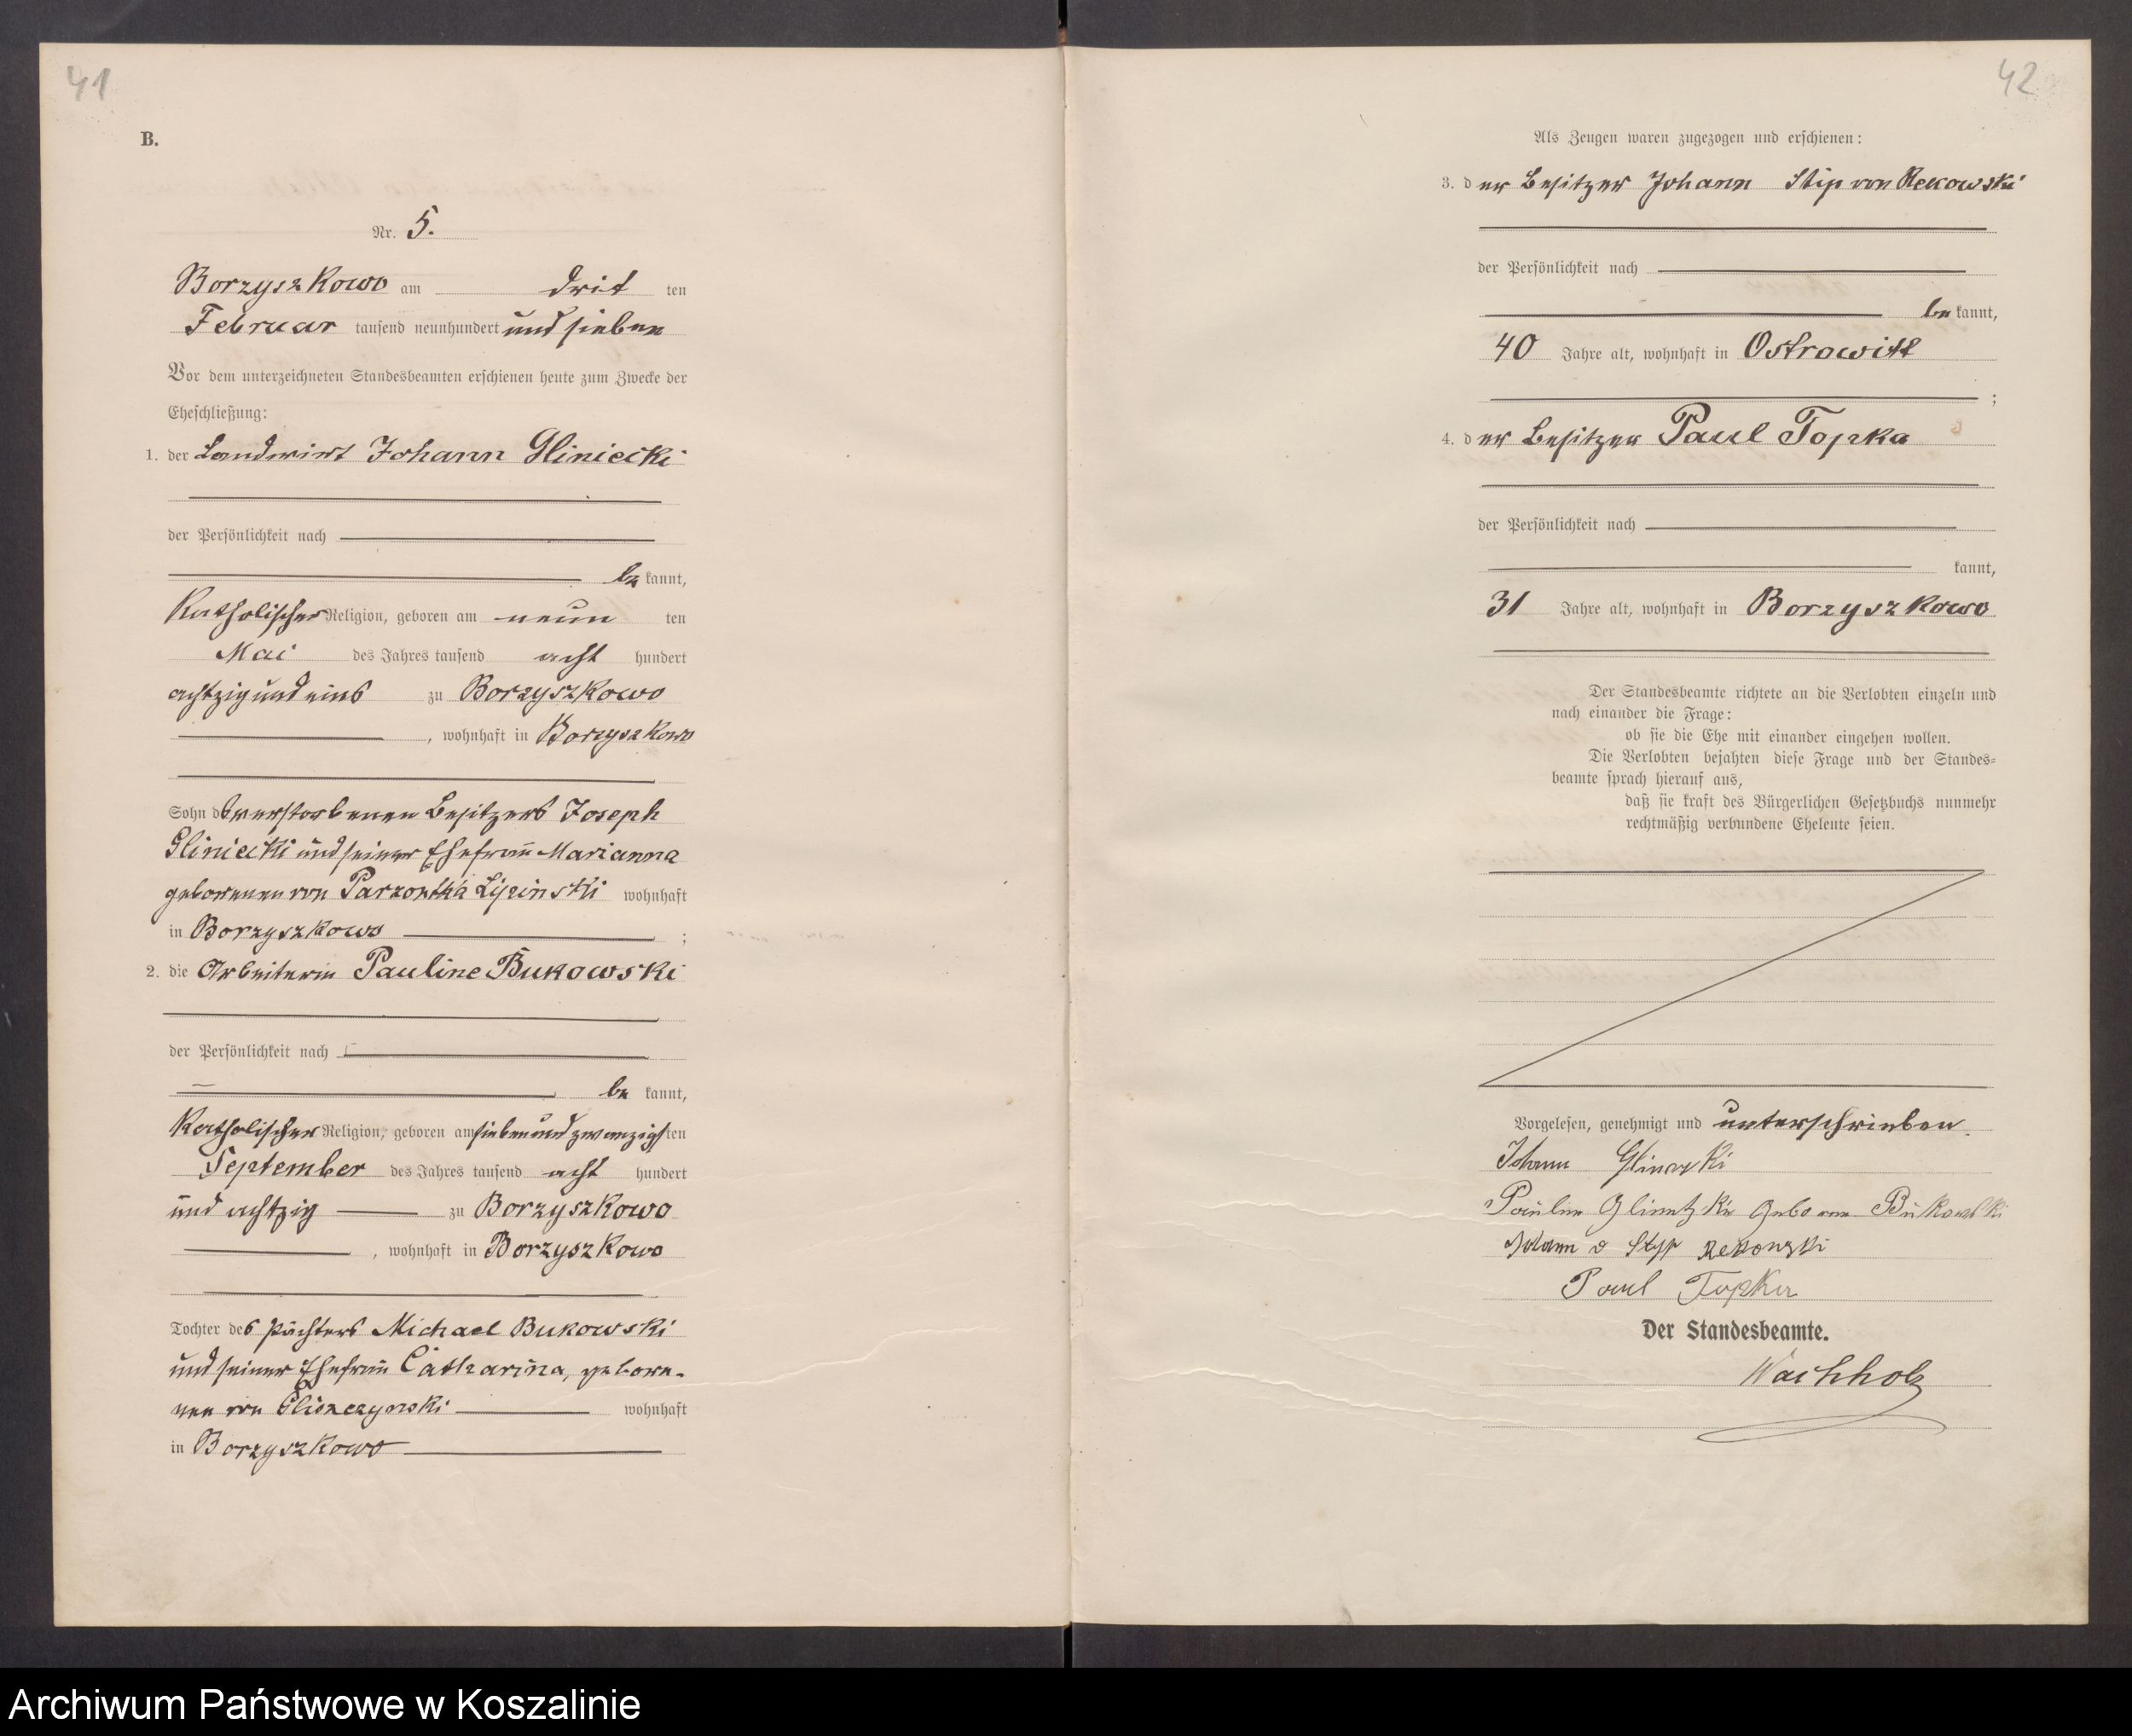 41
B.
Nr. 5.
Borzyszkowo am drit ten
Februar tausend neunhundert und sieben
Vor dem unterzeichneten Standesbeamten erschienen heute zum Zwecke der
Eheschließung:
1. der Landwirt Johann Gliniecki
der Persönlichkeit nach
be kannt,
Katholischer Religion, geboren am neun ten
Mai des Jahres tausend acht hundert
achtzig und eins zu Borzyszkowo
, wohnhaft in Borzyszkowo
Sohn des verstorbenen Besitzers Joseph
Gliniecki und seiner Ehefrau Marianna
geborenen von Lipinski wohnhaft
in Borzyszkowo ;
2. die Arbeiterin Pauline Bukowski
der Persönlichkeit nach
be kannt,
Katholischer Religion, geboren am siebenundzwanzigsten
September des Jahres tausend acht hundert
und achtzig zu Borzyszkowo
, wohnhaft in Borzyszkowo
Tochter des Pächters Michael Bukowski
und seiner Ehefrau Catharina, gebore-
nen von Gliszczynski wohnhaft
in Borzyszkowo
42
Als Zeugen waren zugezogen und erschienen:
3. der Besitzer Johann Stip von Rekowski
der Persönlichkeit nach
be kannt,
40 Jahre alt, wohnhaft in Ostrowitt
;
4. der Besitzer Paul Topka
der Persönlichkeit nach
kannt,
31 Jahre alt, wohnhaft in Borzyszkowo
Der Standesbeamte richtete an die Verlobten einzeln und
nach einander die Frage:
ob sie die Ehe mit einander eingehen wollen.
Die Verlobten bejahten diese Frage und der Standes-
beamte sprach hierauf aus,
daß sie kraft des Bürgerlichen Gesetzbuchs nunmehr
rechtmäßig verbundene Eheleute seien.
Vorgelesen, genehmigt und unterschrieben.
Johann
Paulin Bukowski
Johann v Styp Rekowski
Paul Topka
Der Standesbeamte.
Wachholz
Archiwum Państwowe w Koszalinie